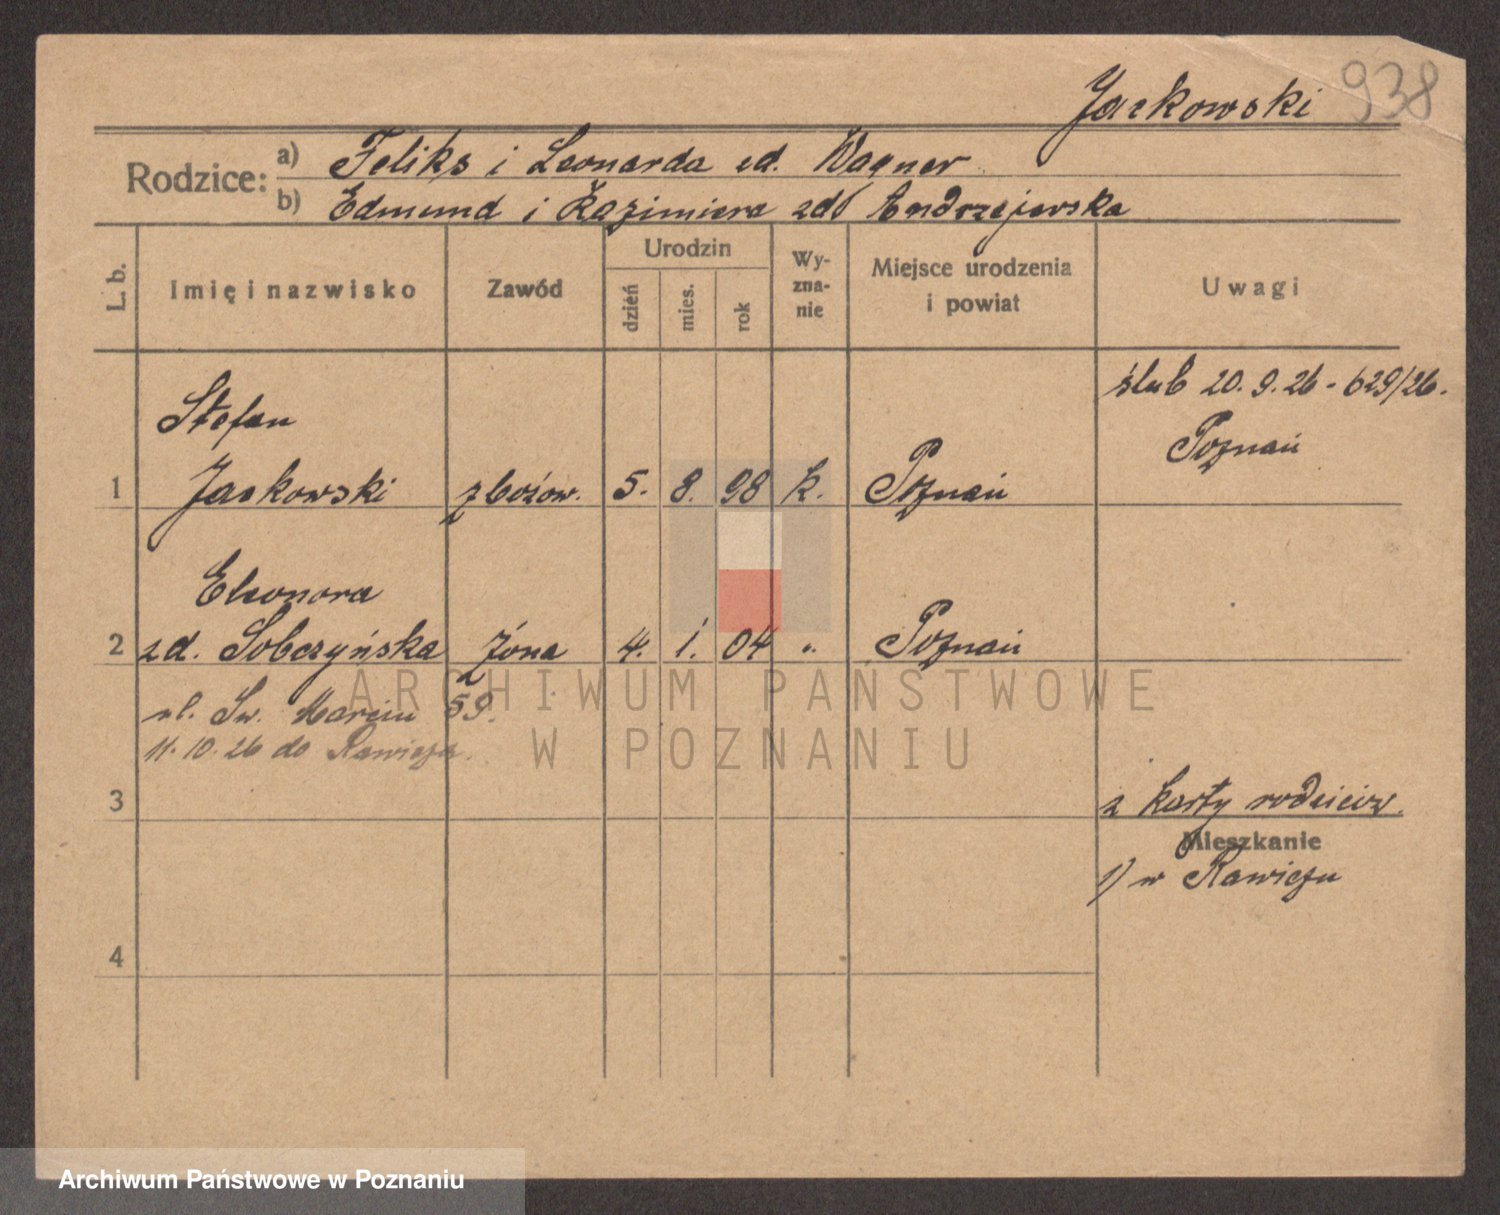 Jackowski 938
Rodzice: a) Feliks i Leonarda zd. Wagner
b) Edmund i Kazimiera zd. Andrzejewska
L. b.
Imię i nazwisko
Zawód
Urodzin
dzień
mies.
rok
Wy-
zna-
nie
Miejsce urodzenia
i powiat
Uwagi
ślub 20. 9. 26 - 629/26.
Poznań
Stefan
1 Jackowski zbożow. 5. 8. 98 k. Poznań
Eleonora
2 zd. Sobczyńska żona 4. 1. 04 " Poznań
ul. Św. Marcin 59.
11. 10. 26 do Rawicza.
3
z karty rodziców.
Mieszkanie
1) w Rawiczu
4
ARCHIWUM PAŃSTWOWE
W POZNANIU
Archiwum Państwowe w Poznaniu